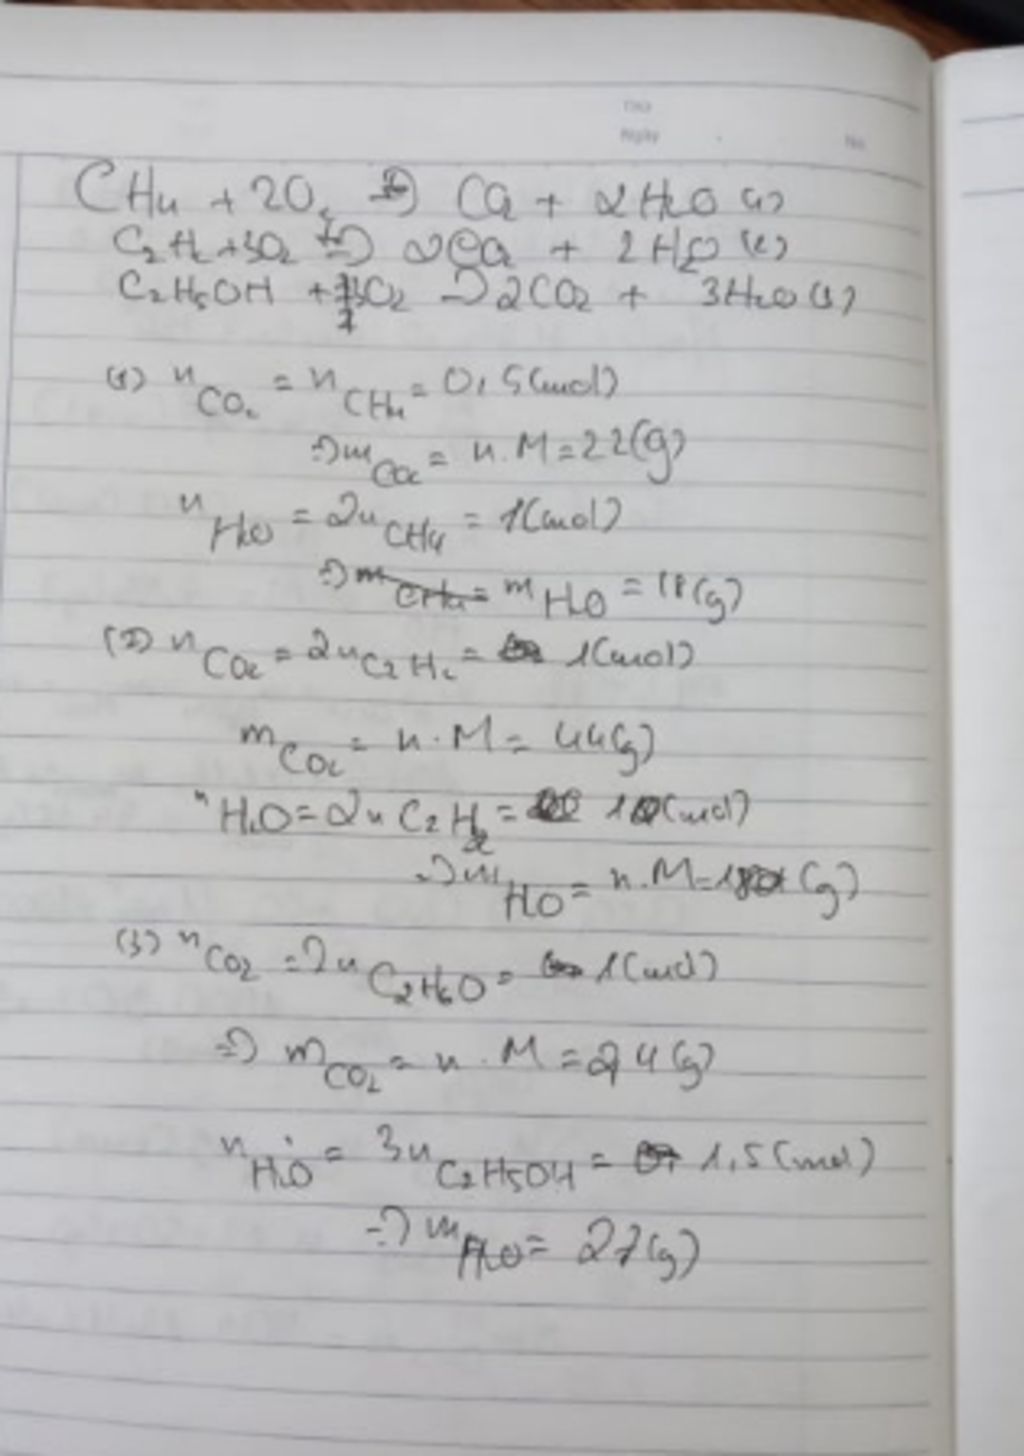 Ngày No
CH4 + 2O2 => CO2 + 2H2O (1)
C2H2 + 3O2 => 2CO2 + 2H2O (2)
C2H5OH + 3O2 => 2CO2 + 3H2O (3)
(1) nCO2 = nCH4 = 0,5(mol)
=> mCO2 = n.M = 22(g)
nH2O = 2nCH4 = 1(mol)
=> mH2O = 18(g)
(2) nCO2 = 2nC2H2 = 1(mol)
mCO2 = n.M = 44(g)
nH2O = 2nC2H2 = 1(mol)
=> mH2O = n.M = 18(g)
(3) nCO2 = 2nC2H6O = 1(mol)
=> mCO2 = n.M = 24(g)
nH2O = 3nC2H5OH = 1,5(mol)
=> mH2O = 27(g)